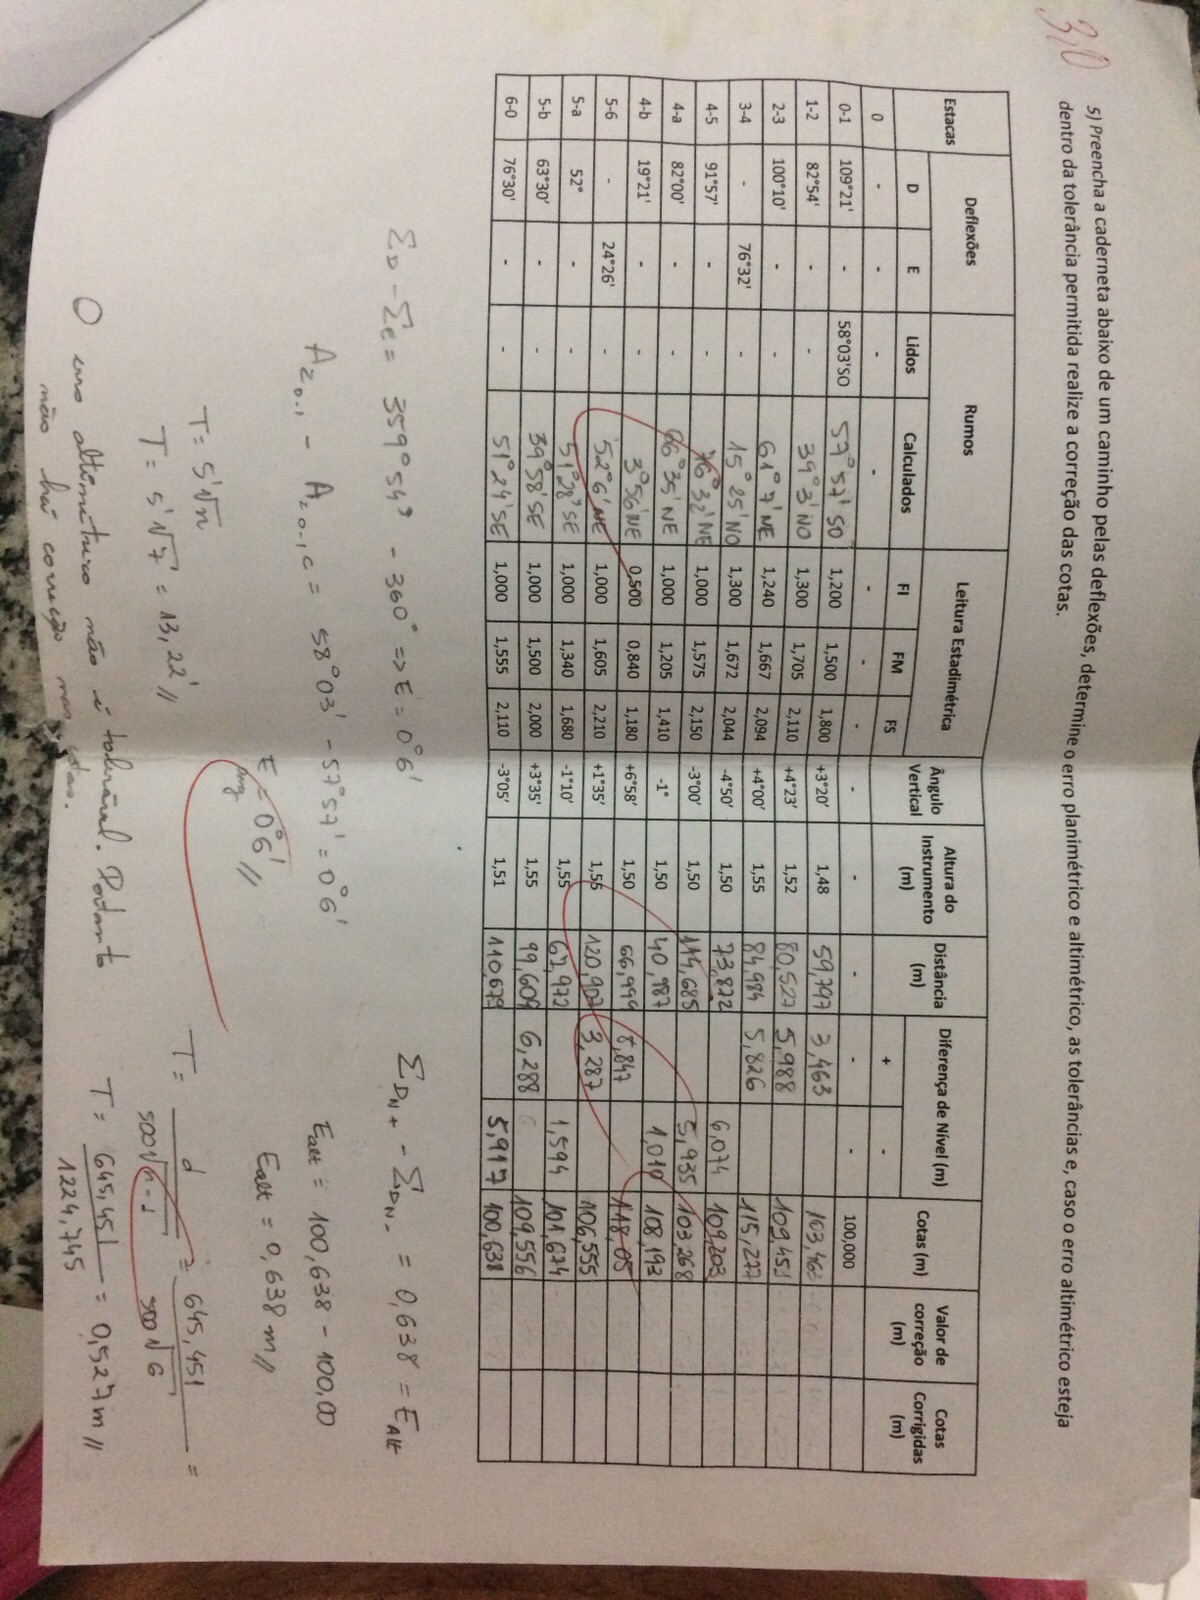 3,0
5) Preencha a caderneta abaixo de um caminho pelas deflexões, determine o erro planimétrico e altimétrico, as tolerâncias e, caso o erro altimétrico esteja
dentro da tolerância permitida realize a correção das cotas.
Estacas Deflexões Rumos Leitura Estadimétrica Ângulo Vertical Altura do Instrumento (m) Distância (m) Diferença de Nível (m) Cotas (m) Valor de correção (m) Cotas Corrigidas (m)
D E Lidos Calculados FI FM FS + -
0 - - - - - - - - - - - - 100,000
0-1 109°21' - 58°03'SO 57°57'SO 1,200 1,500 1,800 +3°20' 1,48 59,797 3,463 103,463
1-2 82°54' - - 39°3'NO 1,300 1,705 2,110 +4°23' 1,52 80,527 5,988 109,451
2-3 100°10' - - 61°7'NE 1,240 1,667 2,094 +4°00' 1,55 84,984 5,826 115,277
3-4 - 76°32' - 15°25'NO 1,300 1,672 2,044 -4°50' 1,50 73,872 6,074 109,203
4-5 91°57' - - 76°32'NE 1,000 1,575 2,150 -3°00' 1,50 114,685 5,935 103,268
4-a 82°00' - - 66°35'NE 1,000 1,205 1,410 -1° 1,50 40,987 1,010 108,193
4-b 19°21' - - 3°56'NE 0,500 0,840 1,180 +6°58' 1,50 66,999 8,847 118,05
5-6 - 24°26' - 52°6'NE 1,000 1,605 2,210 +1°35' 1,55 120,907 3,287 106,555
5-a 52° - - 51°28'SE 1,000 1,340 1,680 -1°10' 1,55 67,972 1,594 101,674
5-b 63°30' - - 39°58'SE 1,000 1,500 2,000 +3°35' 1,55 99,609 6,288 109,556
6-0 76°30' - - 51°24'SE 1,000 1,555 2,110 -3°05' 1,51 110,679 5,917 100,638
ΣD - Σe = 359°54' - 360° => E = 0°6'
ΣDN+ - ΣDN- = 0,638 = EAlt
Az0-1 - Az0-1c = 58°03' - 57°57' = 0°6'
Ealt = 100,638 - 100,00
E ang = 0°6' //
Ealt = 0,638 m //
T = 5'√n
T = 5'√7 = 13,22' //
T = d / 500√n-1 = 645,451 / 500√6 =
T = 645,451 / 1224,745 = 0,527 m //
O erro altimétrico não é tolerável. Portanto
não há correção nas cotas.